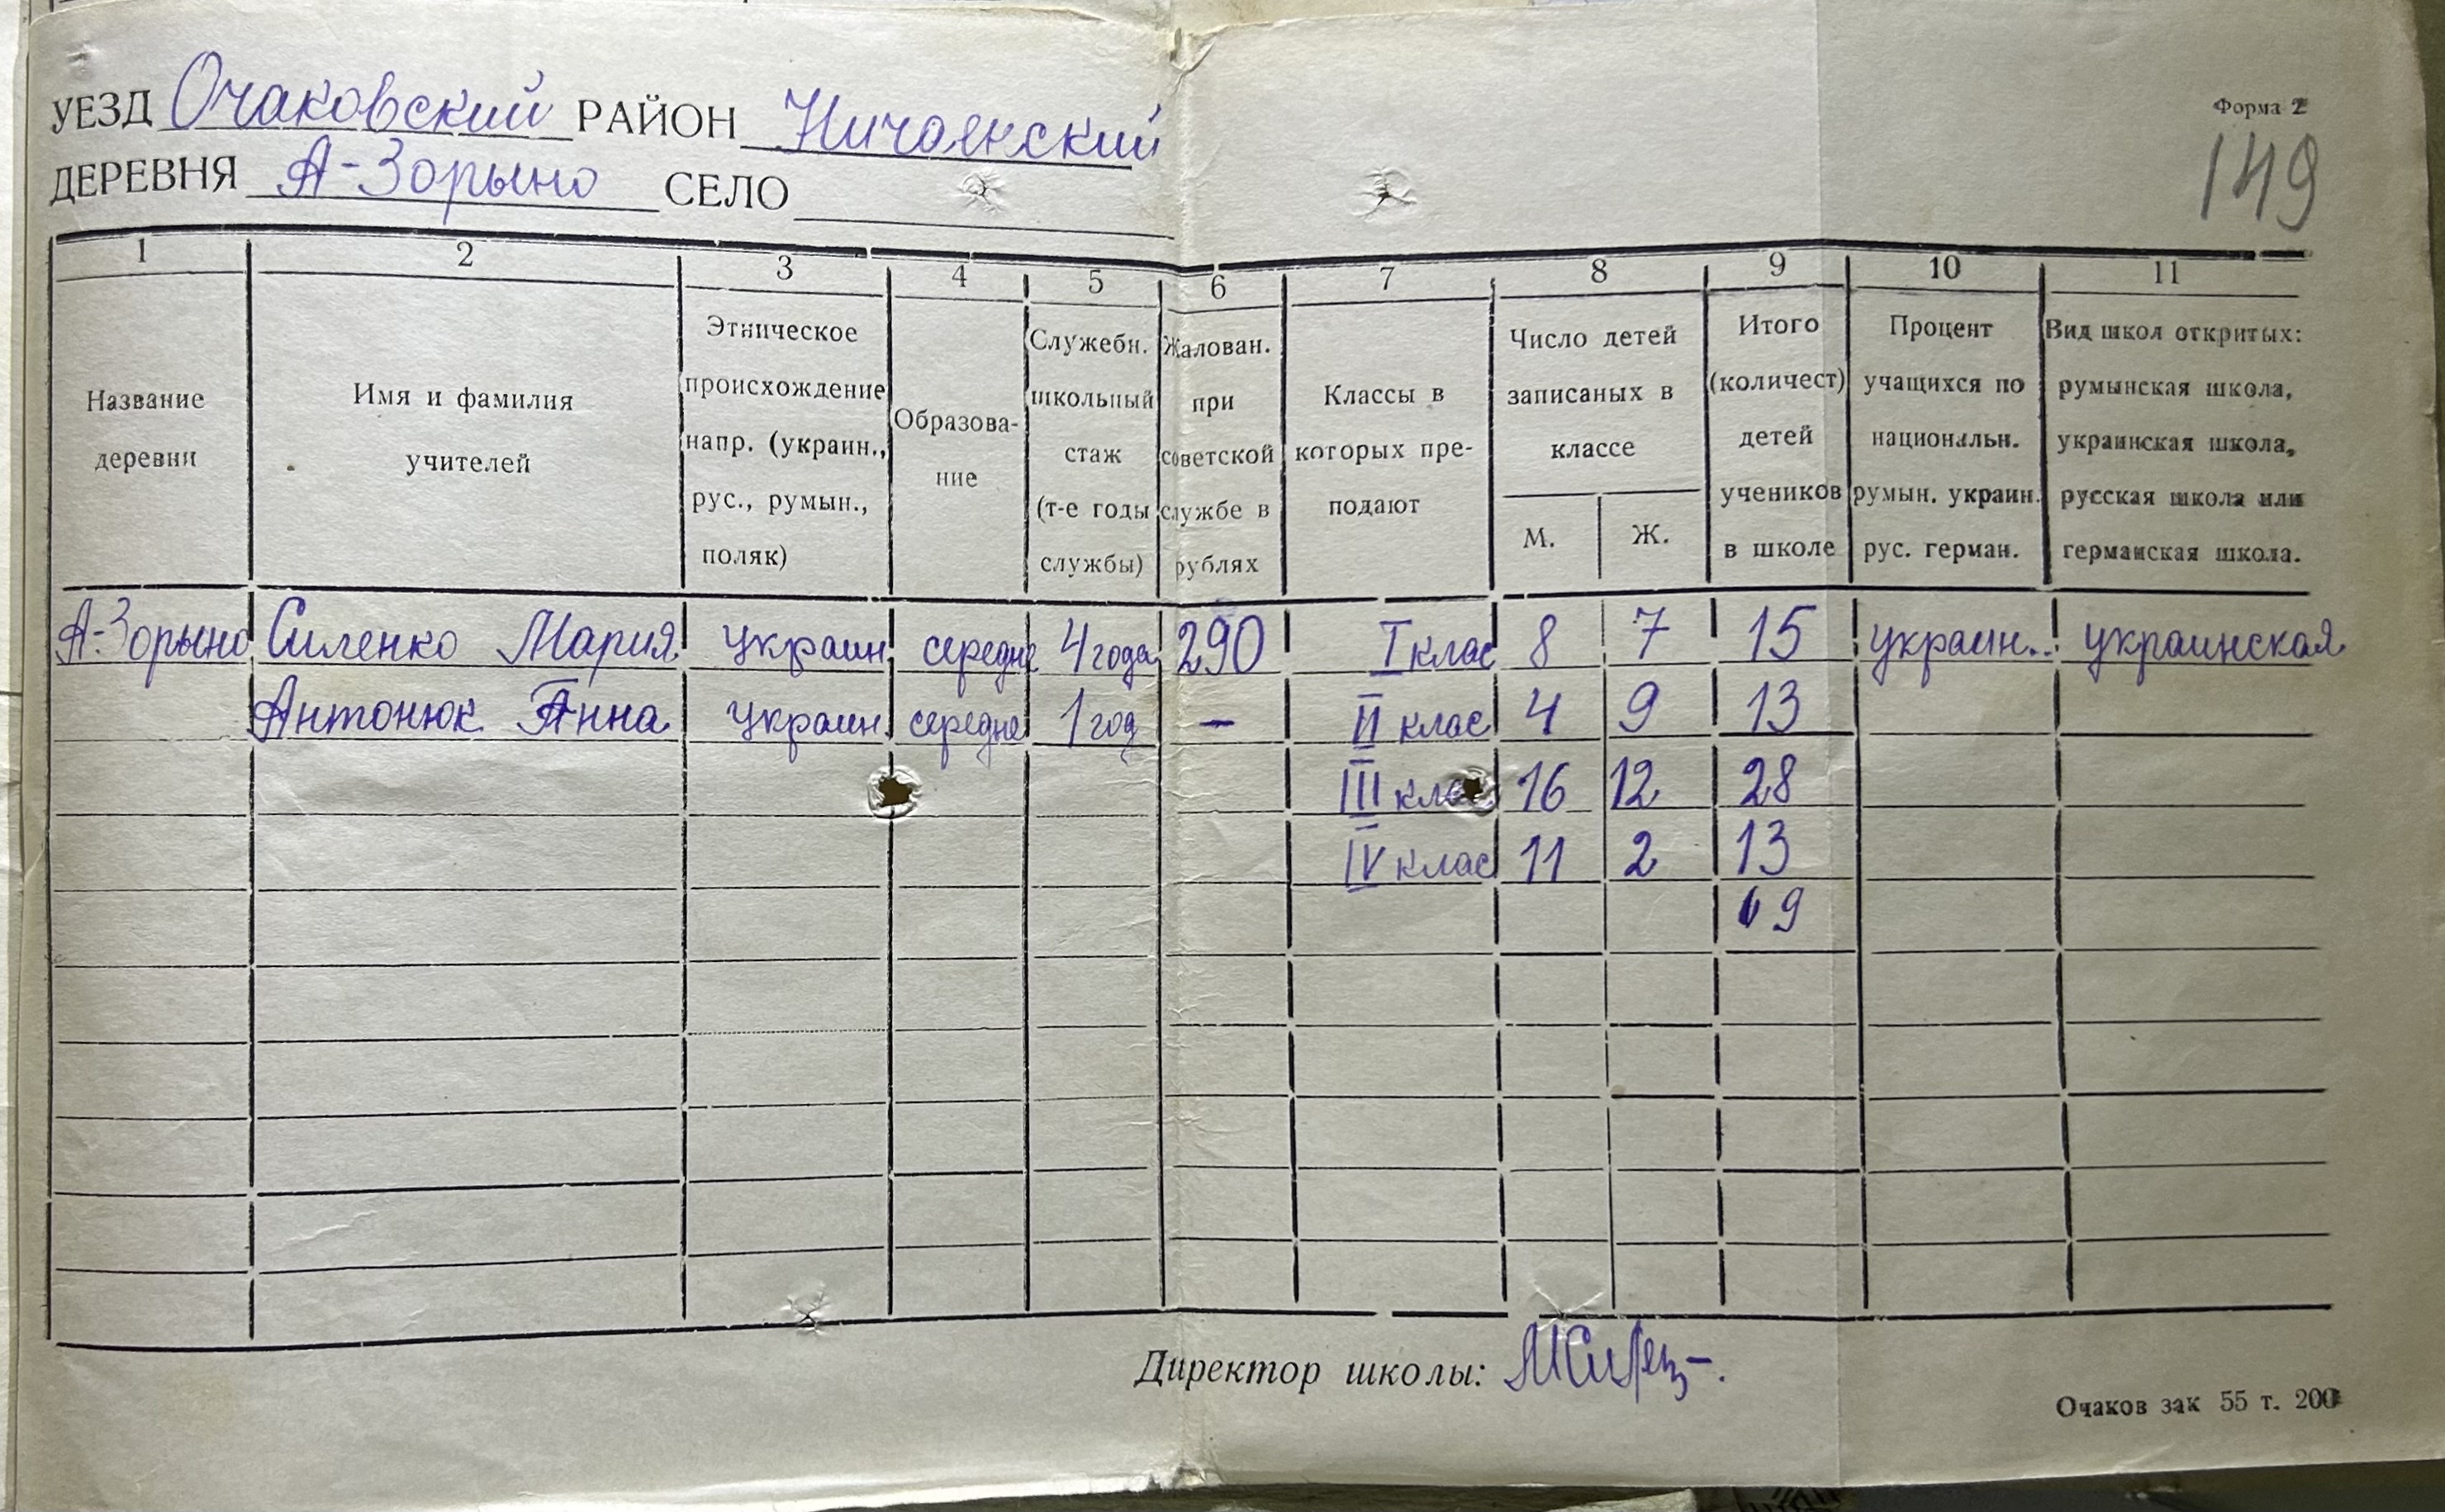 Форма 2
149
УЕЗД Очаковский РАЙОН Ничаенский
ДЕРЕВНЯ А-Зорыно СЕЛО
1 2 3 4 5 6 7 8 9 10 11
Название деревни
Имя и фамилия учителей
Этническое происхождение напр. (украин., рус., румын., поляк)
Образова- ние
Служебн. школьный стаж (т-е годы службы)
Жалован. при советской службе в рублях
Классы в которых пре- подают
Число детей записаных в классе
М. Ж.
Итого (количест) детей учеников в школе
Процент учащихся по национальн. румын. украин. рус. герман.
Вид школ откритых: румынская школа, украинская школа, русская школа или германская школа.
А-Зорыно Силенко Мария украин середне 4 года 290 I клас 8 7 15 украин.. украинская
Антонюк Анна украин. середне 1 год — II клас 4 9 13
III клас 16 12 28
IV клас 11 2 13
69
Директор школы:
Очаков зак 55 т. 200